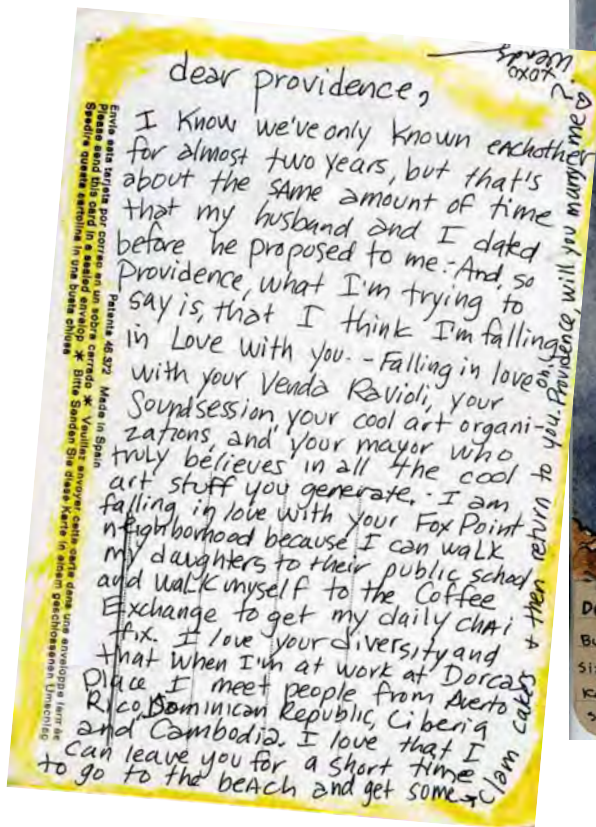 dear providence,
I Know we've only known eachother
for almost two years, but that's
about the same amount of time
that my husband and I dated
before he proposed to me. - And, so
Providence, what I'm trying to
say is, that I think I'm falling
in Love with you. - Falling in love
with your Venda Ravioli, your
Soundsession, your cool art organi-
zations, and your mayor who
truly believes in all the cool
art stuff you generate. - I am
falling in love with your Fox Point
neighborhood because I can walk
my daughters to their public school
and walk myself to the Coffee
Exchange to get my daily chai
fix. I love your diversity and
that when I'm at work at Dorcas
Place I meet people from Puerto
Rico, Dominican Republic, Ciberia
and Cambodia. I love that I
can leave you for a short time
to go to the beach and get some →
clam cakes & then return to you. oh, Providence, will you marry me?
xoxo
Wendy
Envie esta tarjeta por correo en un sobre cerrado * Veuillez envoyer cette carte dans une enveloppe fermée
Please send this card in a sealed envelop * Bitte Senden Sie diese Karte in einem geschlossenen Umschlag
Spedire questa cartolina in una busta chiusa
Patente 46.372 Made in Spain